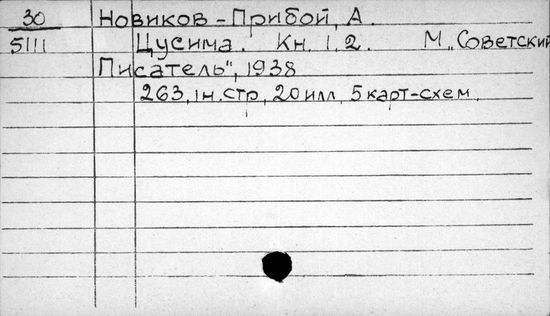 30 Новиков-Прибой, А.
5111 Цусима. Кн. 1.2. М. „Советский
Писатель", 1938
263, 1н.стр, 20 илл, 5 карт-схем.